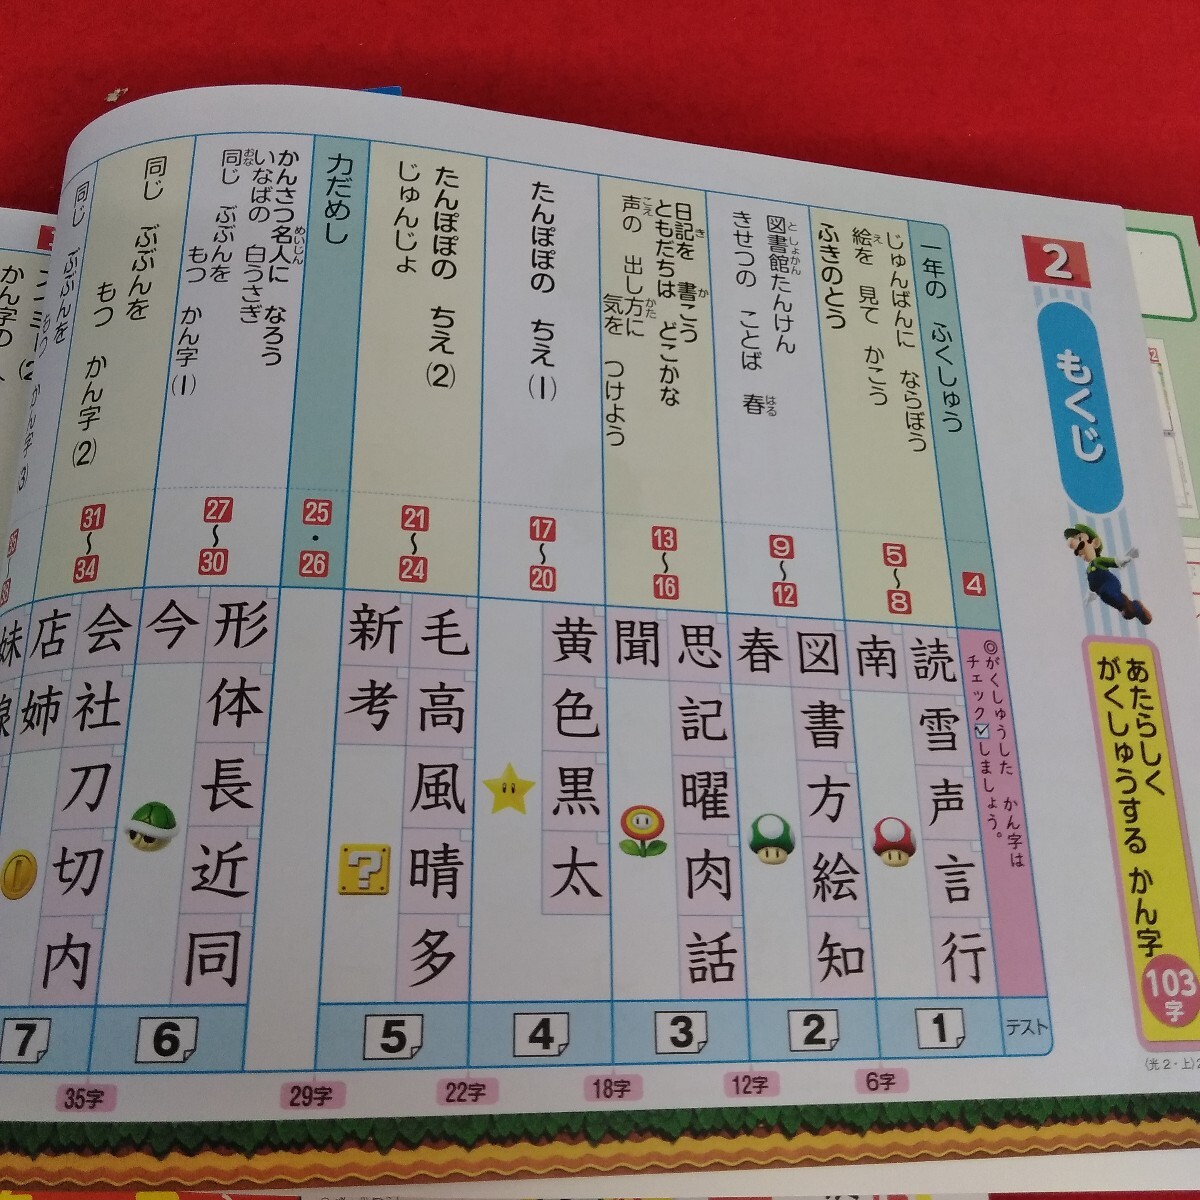 2
もくじ
あたらしく
がくしゅうする かん字
103字
(光2・上)2
一年の ふくしゅう
4
◎がくしゅうした かん字は
チェック☑しましょう。
テスト
じゅんばんに ならぼう
絵を 見て かこう
え
ふきのとう
5〜8
読雪声言行
南
1
6字
図書館たんけん
としょかん
きせつの ことば 春
はる
9〜12
図書方絵知
春
2
12字
日記を 書こう
き
か
ともだちは どこかな
声の 出し方に
こえ
かた
気を つけよう
13〜16
思記曜肉話
聞
3
18字
たんぽぽの ちえ(1)
17〜20
黄色黒太
4
22字
たんぽぽの ちえ(2)
じゅんじょ
21〜24
毛高風晴多
新考
5
29字
力だめし
25・26
かんさつ名人に なろう
めいじん
いなばの 白うさぎ
同じ ぶぶんを
おな
もつ かん字(1)
27〜30
形体長近同
今
6
35字
同じ ぶぶんを
もつ かん字(2)
31〜34
会社刀切内
店姉
7
同じ ぶぶんを
もつ かん字(3)
妹
かん字の